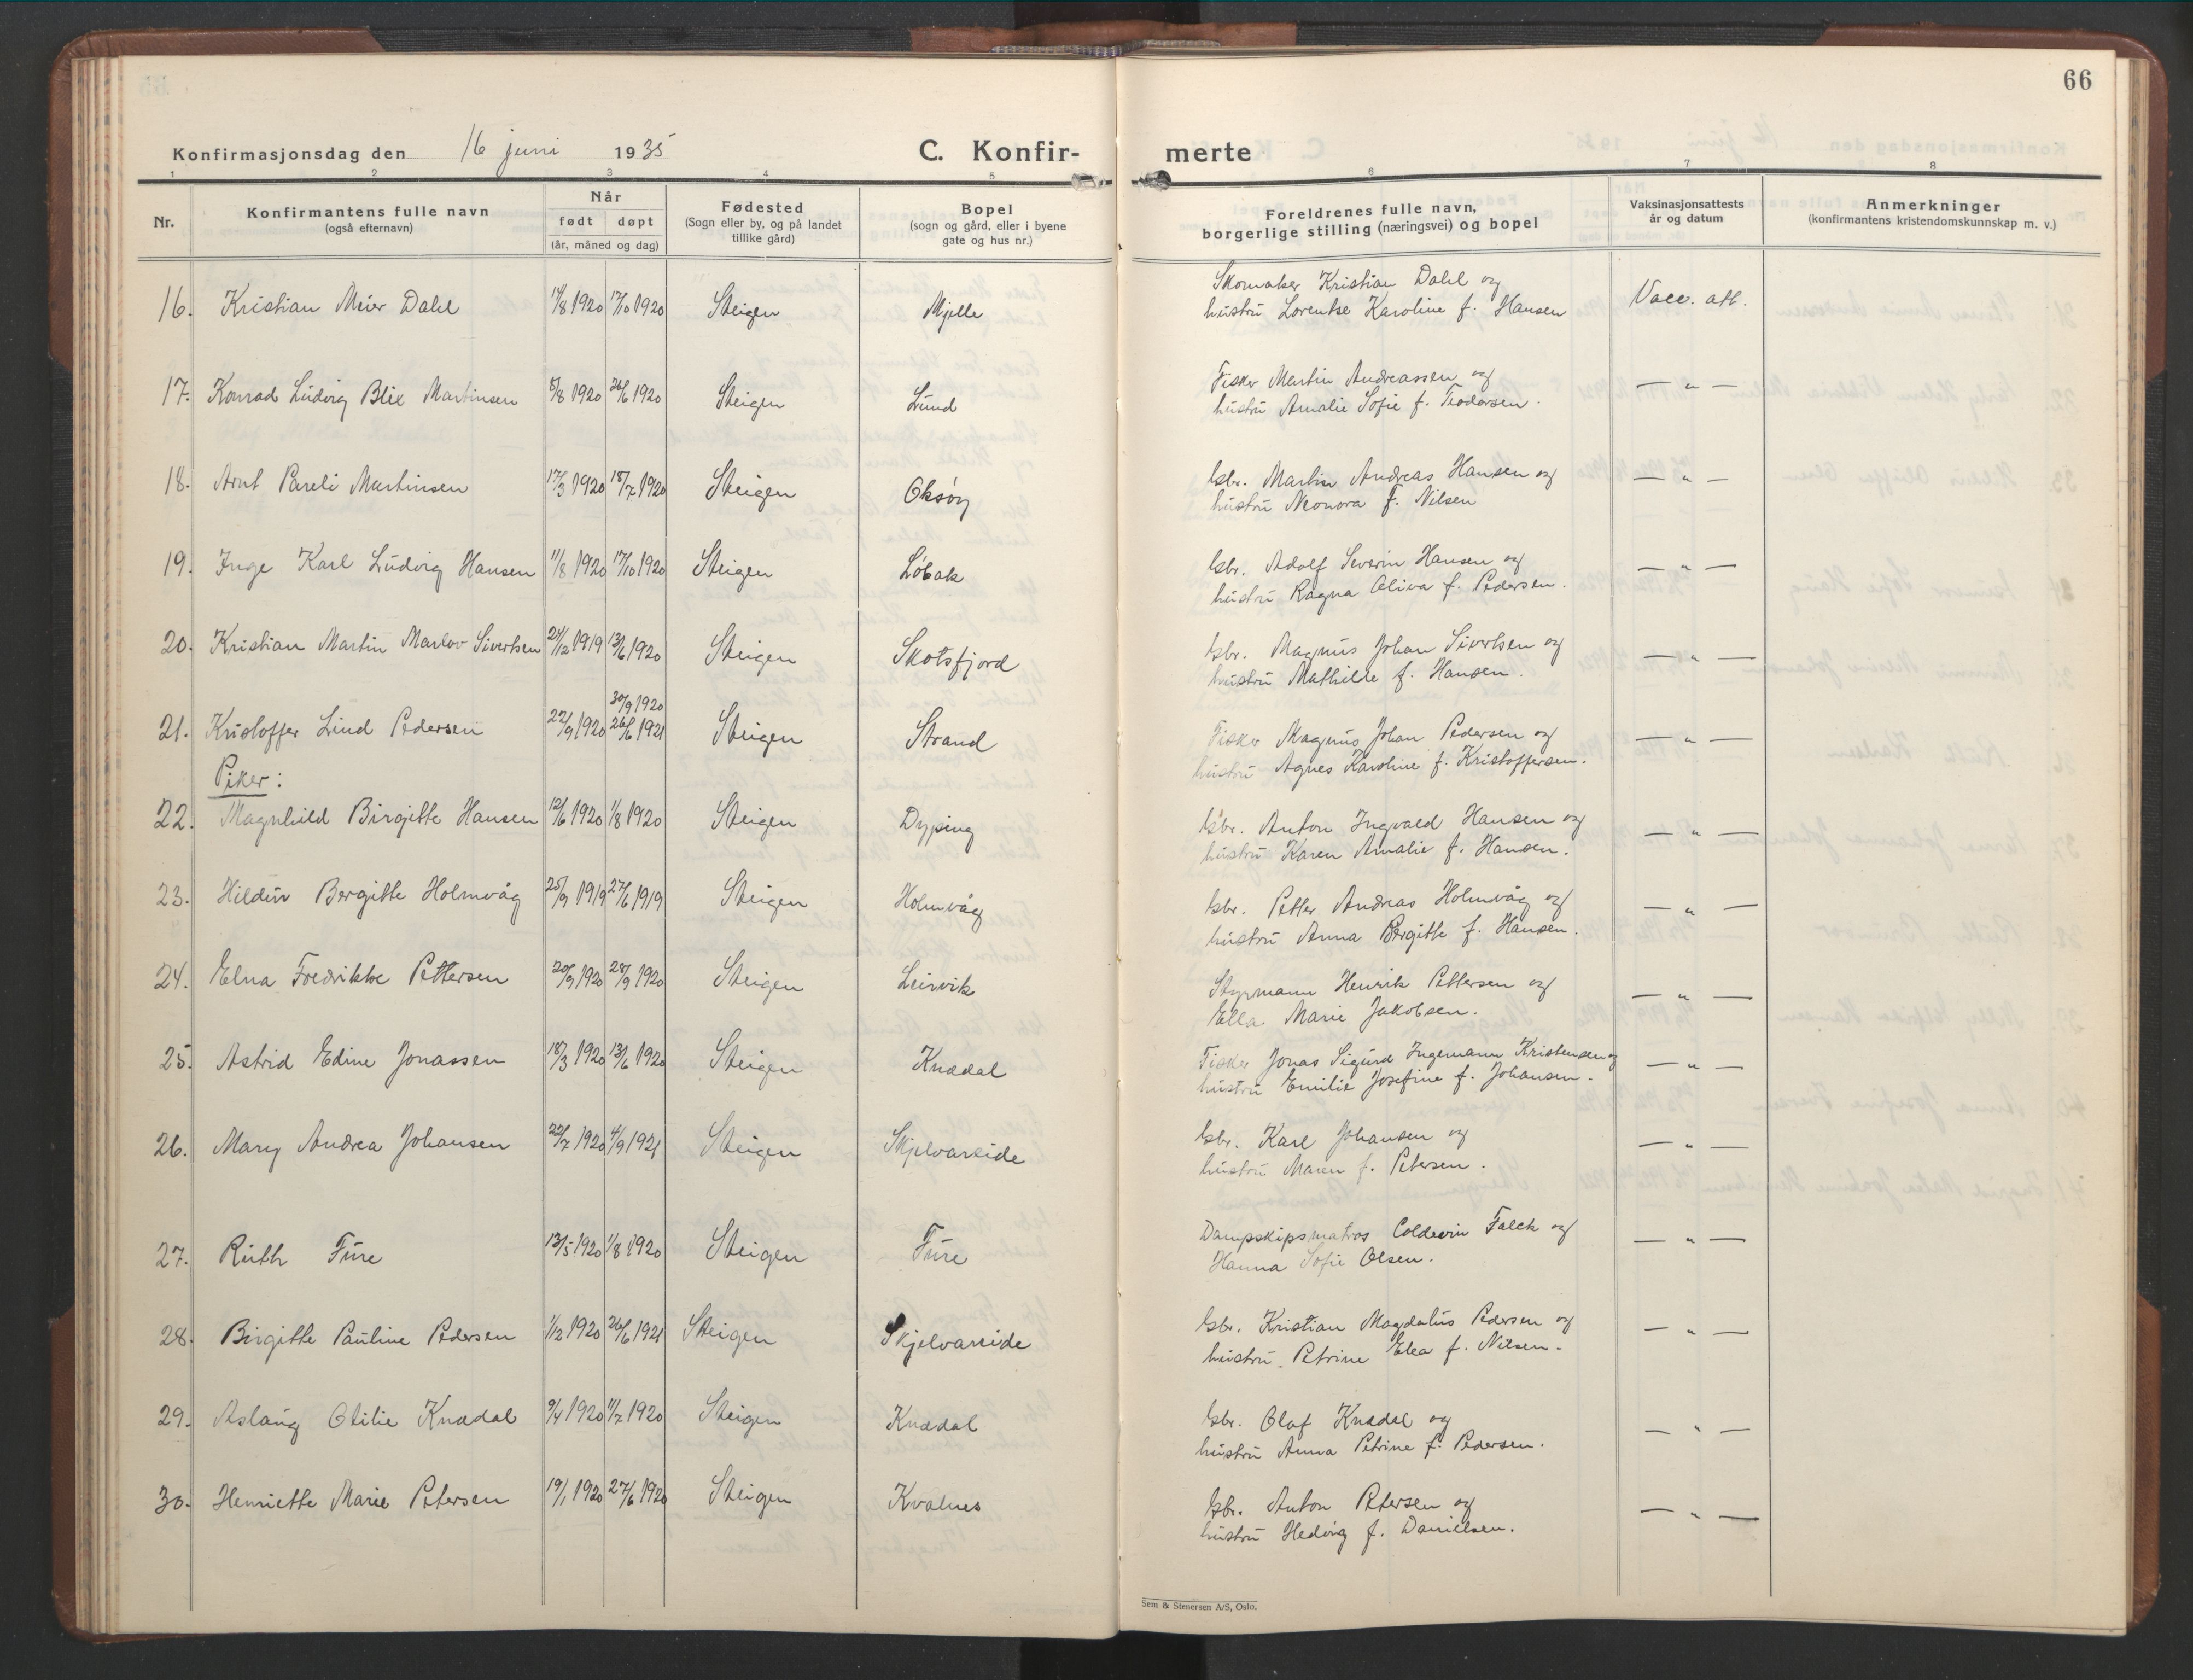 66
Konfirmasjonsdag den 16 juni 1935
C. Konfir-
merte
1 2 3 4 5 6 7 8
Nr.
Konfirmantens fulle navn
(også efternavn)
Når
født døpt
(år, måned og dag)
Fødested
(Sogn eller by, og på landet
tillike gård)
Bopel
(sogn og gård, eller i byene
gate og hus nr.)
Foreldrenes fulle navn,
borgerlige stilling (næringsvei) og bopel
Vaksinasjonsattests
år og datum
Anmerkninger
(konfirmantens kristendomskunnskap m. v.)
16. Kristian Meier Dahl 14/8 1920 17/10 1920 Steigen Mjelle
Skomaker Kristian Dahl og
hustru Lorentse Karoline f. Hansen
Vacc. att.
17. Konrad Ludvig Blix Martinsen 5/8 1920 26/6 1920 Steigen Lund
Fisker Martin Andreassen og
hustru Amalie Sofie f. Teodorsen.
— " —
18. Arnt Pareli Martinsen 17/3 1920 18/7 1920 Steigen Oksøy
Gbr. Martin Andreas Hansen og
hustru Neonora f. Nilsen
— " —
19. Inge Karl Ludvig Hansen 11/8 1920 17/10 1920 Steigen Løbak
Gbr. Adolf Severin Hansen og
hustru Ragna Oliva f. Pedersen.
— " —
20. Kristian Martin Marlov Sivertsen 24/12 1919 13/6 1920 Steigen Skotsfjord
Gbr. Magnus Johan Sivertsen og
hustru Mathilde f. Hansen.
— " —
30/9 1920
21. Kristoffer Lind Pedersen 22/9 1920 26/6 1921 Steigen Strand
Fisker Magnus Johan Pedersen og
hustru Agnes Karoline f. Kristoffersen.
— " —
Piker:
22. Magnhild Birgitte Hansen 12/6 1920 1/8 1920 Steigen Dyping
Gbr. Anton Ingvald Hansen og
hustru Karen Amalie f. Hansen.
— " —
23. Hildur Bergitte Holmvåg 25/9 1919 27/6 1919 Steigen Holmvåg
Gbr. Petter Andreas Holmvåg og
hustru Anna Bergitte f. Hansen.
— " —
24. Elna Fredrikke Pettersen 20/9 1920 28/9 1920 Steigen Leirvik
Styrmann Henrik Pettersen og
Ella Marie Jakobsen.
— " —
25. Astrid Edine Jonassen 18/3 1920 13/6 1920 Steigen Knædal
Fisker Jonas Sigurd Ingemann Kristensen og
hustru Emilie Josefine f. Johansen.
— " —
26. Mary Andrea Johansen 22/7 1920 4/9 1921 Steigen Skjelvareide
Gbr. Karl Johansen og
hustru Maren f. Petersen.
— " —
27. Ruth Fure 13/5 1920 1/8 1920 Steigen Fure
Dampskipsmatros Coldevin Falch og
Hanna Sofie Olsen.
— " —
28. Birgitte Pauline Pedersen 1/12 1920 26/6 1921 Steigen Skjelvareide
Gbr. Kristian Magdalus Pedersen og
hustru Petrine Elea f. Nilsen.
— " —
29. Aslaug Otilie Knædal 9/4 1920 11/7 1920 Steigen Knædal
Gbr. Olaf Knædal og
hustru Anna Petrine f. Pedersen.
— " —
30. Henriette Marie Petersen 19/1 1920 27/6 1920 Steigen Kvalnes
Gbr. Anton Petersen og
hustru Hedvig f. Danielsen.
— " —
Sem & Stenersen A/S, Oslo.